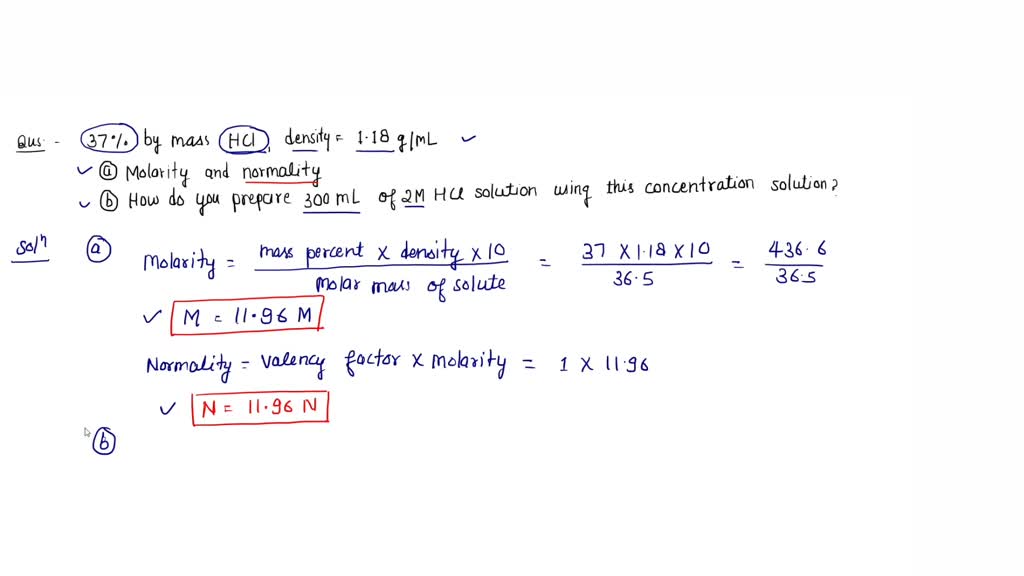 Qus:- 37% by mass HCl, density = 1.18 g/mL
(a) Molarity and normality
(b) How do you prepare 300 mL of 2M HCl solution using this concentration solution?
Solⁿ (a) Molarity = mass percent × density × 10 / molar mass of solute = 37 × 1.18 × 10 / 36.5 = 436.6 / 36.5
M = 11.96 M
Normality = valency factor × molarity = 1 × 11.96
N = 11.96 N
(b)